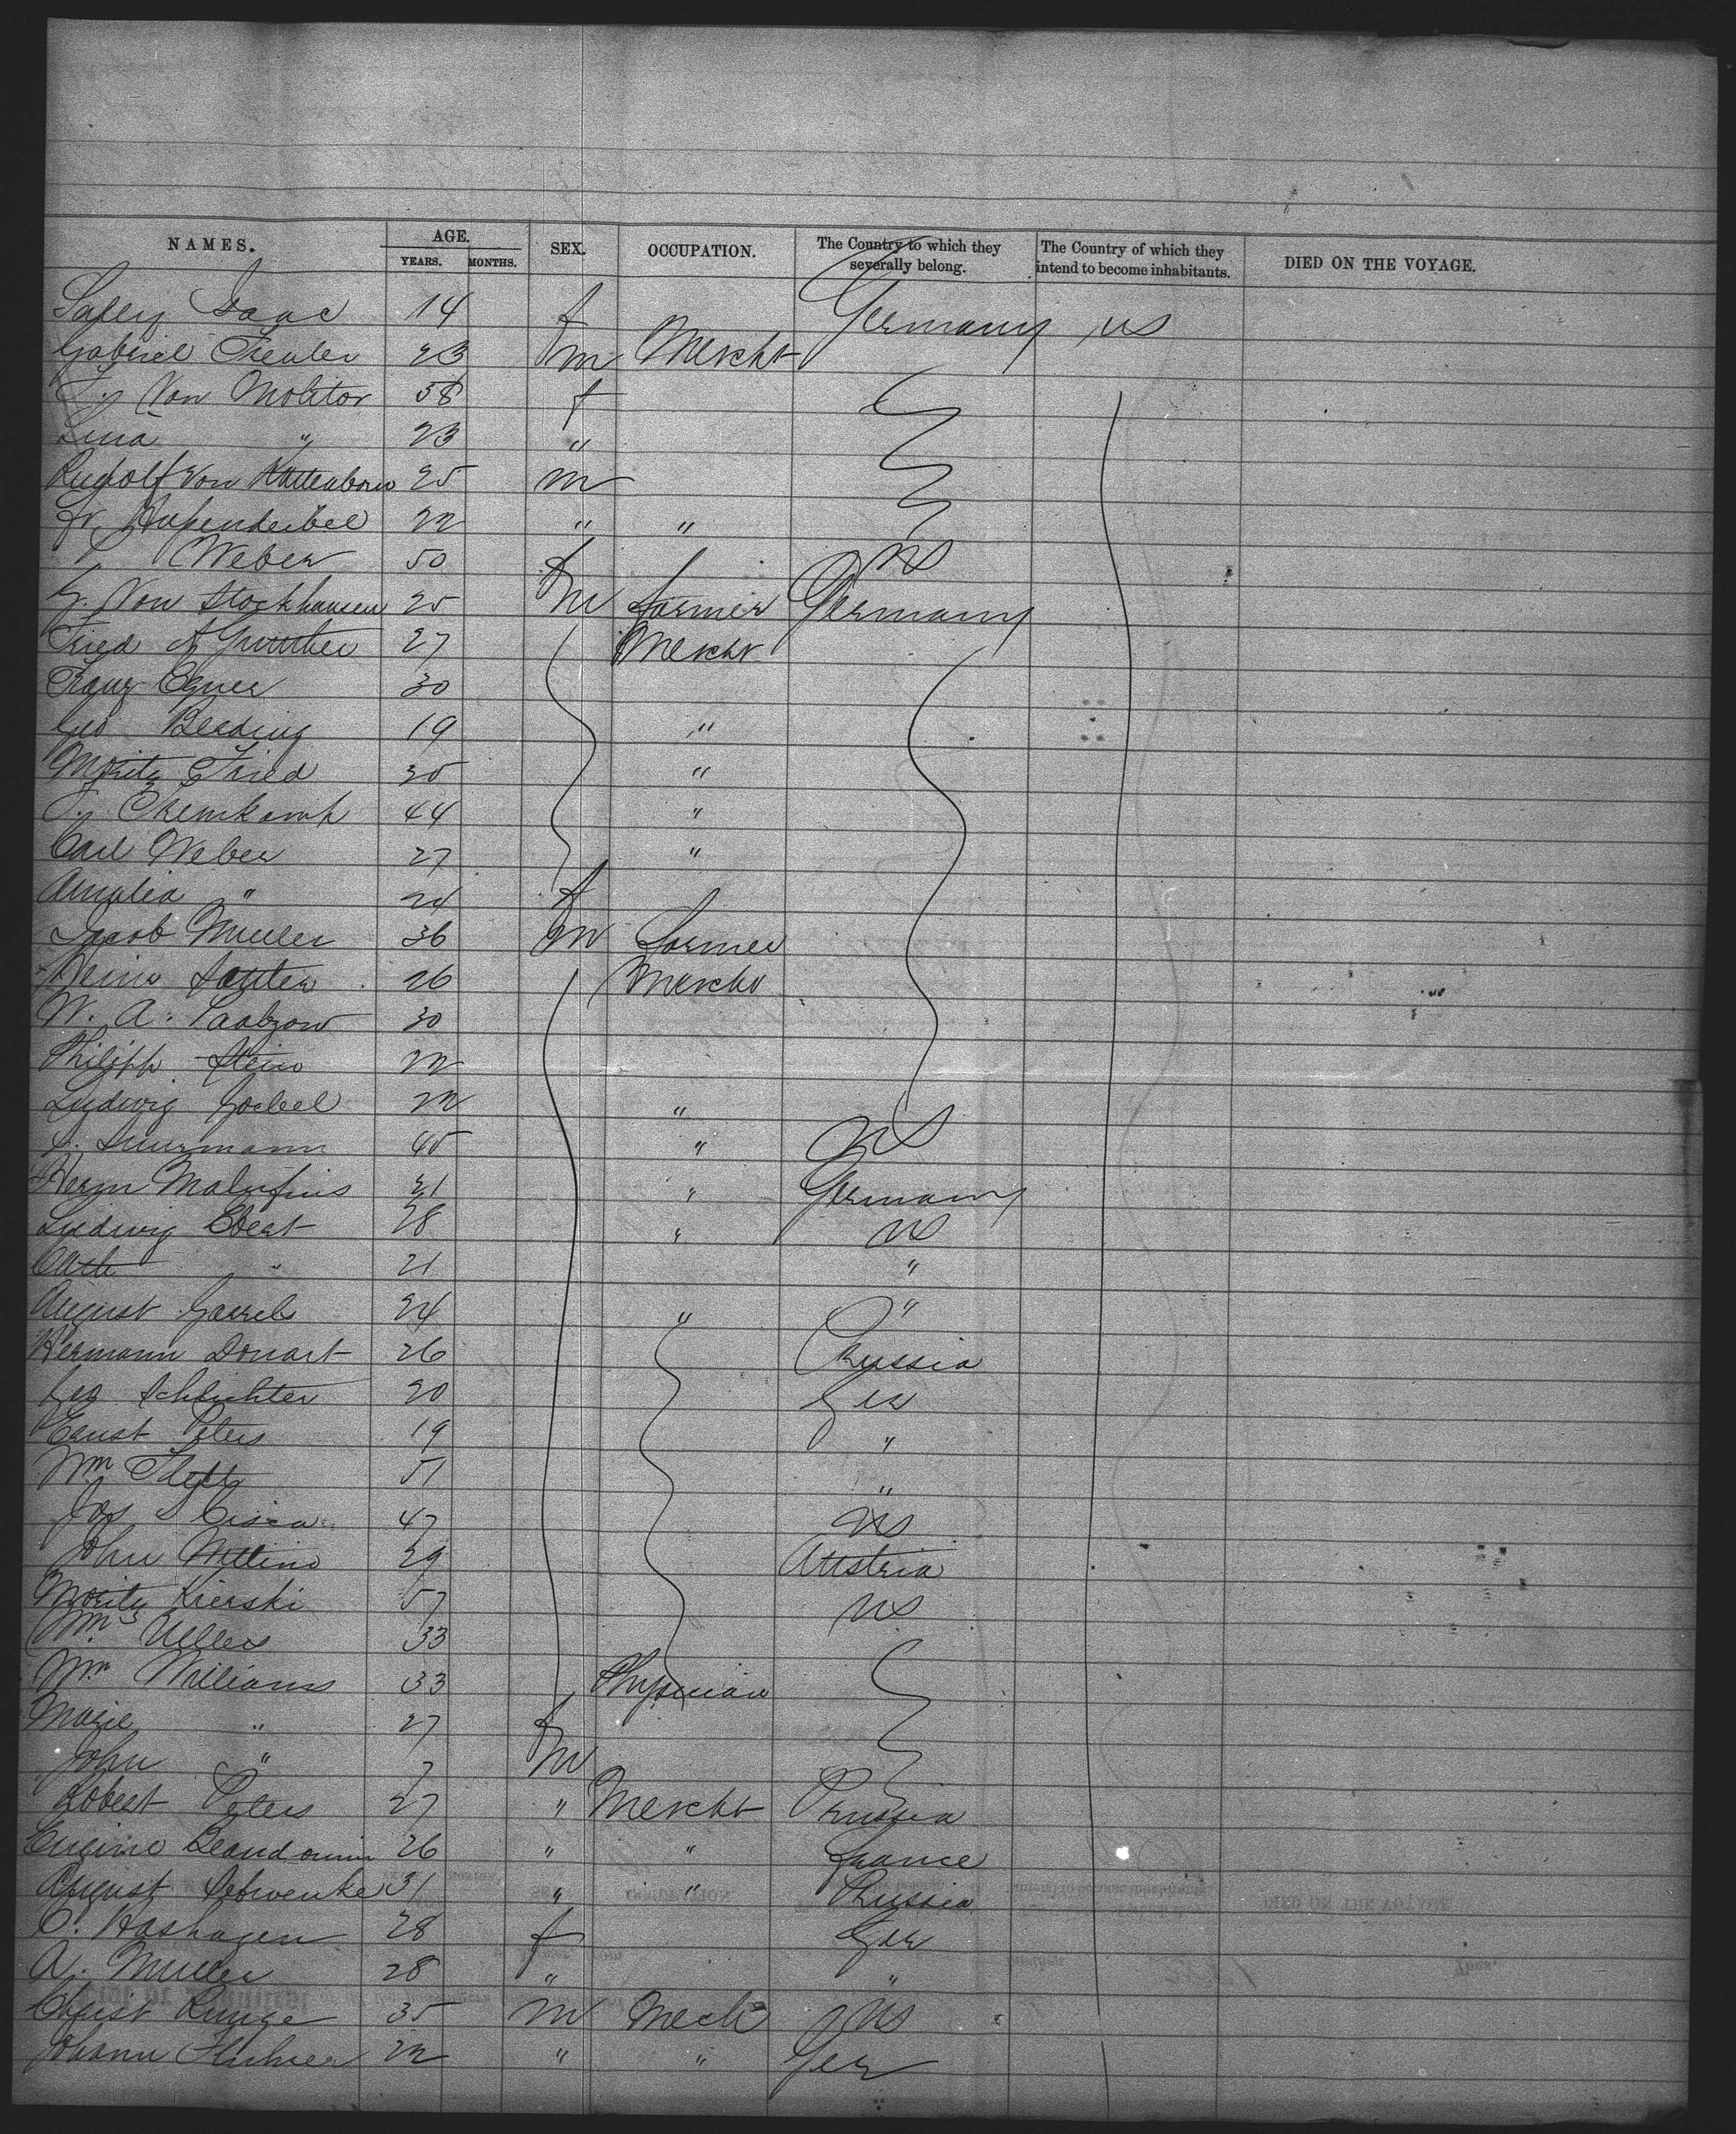 NAMES. AGE. YEARS. MONTHS. SEX. OCCUPATION. The Country to which they severally belong. The Country of which they intend to become inhabitants. DIED ON THE VOYAGE.
Sally Isaac 14 f Germany US
Gabriel 23 m Mercht
Von Molitor 58 f
Lina " 23 "
Rudolf von 25 m
Fr. 22 " "
Weber 50 f US
G. Von Stockhausen 25 m Farmer Germany
Fried A Gunther 27 Mercht
Franz Egner 30
Geo Berding 19 "
Moritz Fried 30 "
44 "
Carl Weber 27 "
Amalia " 24 f
Jacob Muller 36 m Farmer
Heinr Sauter 26 Mercht
W. A. Paalzow 30
Philipp Stein 22
Ludwig Goebel 22 "
45 " US
Herm 31 " Germany
Ludwig Ebert 28 " US
Cath " 21 "
August Garrels 24 " "
Hermann Donart 26 Prussia
Geo Schlichter 20 Ger
Ernst Peters 19 "
Wm 51 "
Jos 47 US
John 29 Austria
Moritz Kierski 57 US
Wm 33
Wm Williams 33 Physician
Marie " 27 f
John " 7 m
Robert Peters 27 " Mercht Prussia
Eugene Beaudouin 26 " " France
August Schwenke 31 " " Prussia
C. Hashagen 28 f Ger
A. Muller 28 " "
Christ Runge 35 m Mech US
Johann 22 " " Ger